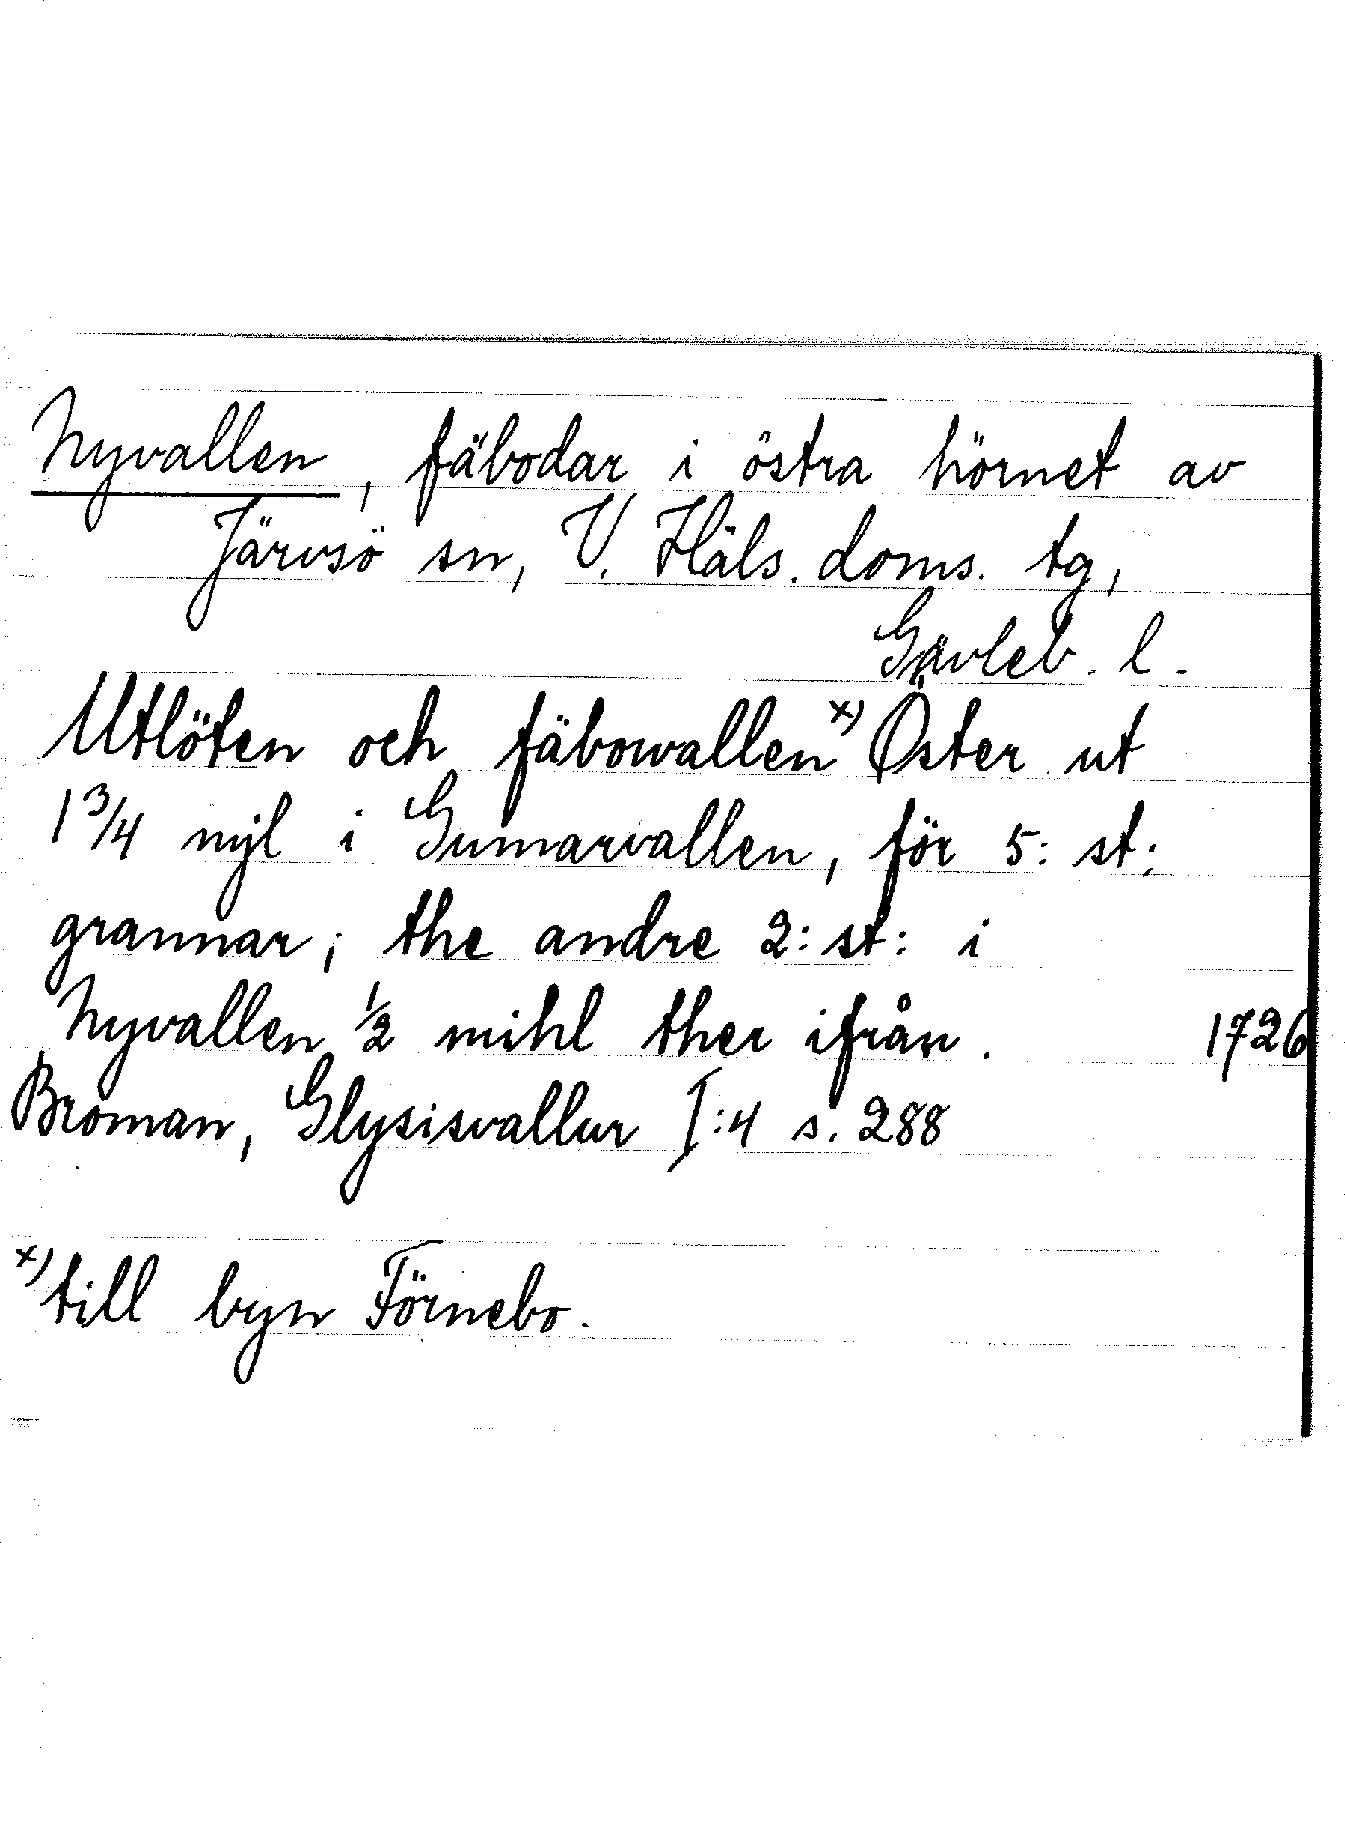 Nyvallen, fäbodar i östra hörnet av
Järvsö sn, V. Häls. doms. tg,
Gävleb. l.
Utlöten och fäbowallen x) Öster ut
1 3/4 mÿl i Gumarvallen, för 5: st:
grannar; the andre 2: st: i
Nyvallen 1/2 mihl ther ifrån. 1726
Broman, Glysisvallur I:4 s. 288
x) till byn Förnebo.